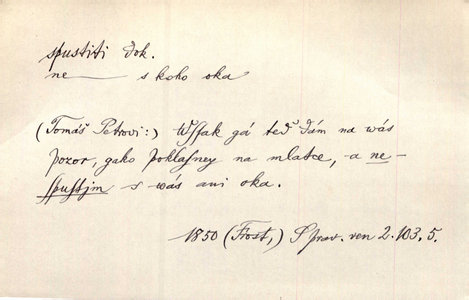 spustiti dok.
ne—— s koho oka
(Tomáš Petrovi:) Wssak gá teď dám na wás
pozor, gako poklasney na mlatce, a ne-
spustjm s wás ani oka.
1850 (Frost,) Sprav. ven 2.103,5.